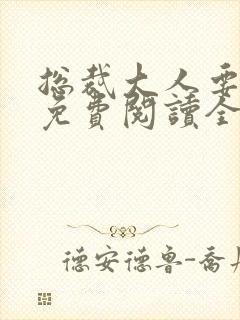 總裁大人要
免費閱讀全
德安德魯-喬